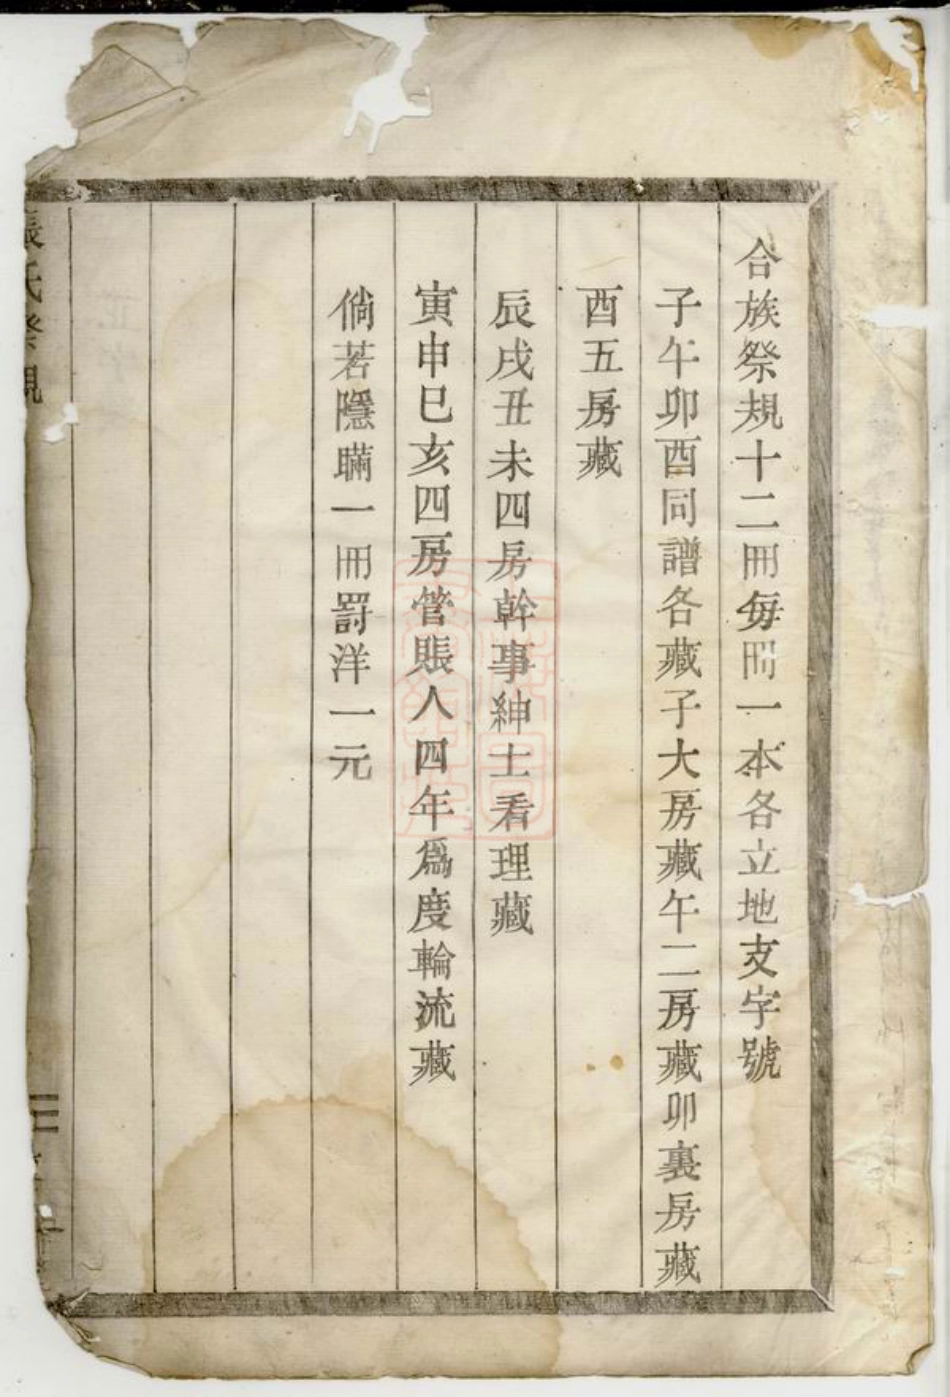 合族祭規十二冊每冊一本各立地支字號
子午卯酉同譜各藏子大房藏午二房藏卯裏房藏
酉五房藏
辰戌丑未四房幹事紳士看理藏
寅申巳亥四房管賬人四年爲度輪流藏
倘若隱瞞一冊罰洋一元
張氏祭規